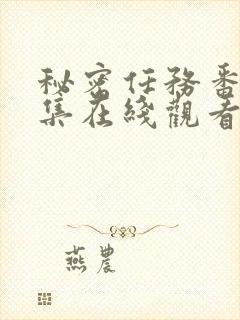 秘密任務番
集在綫觀看
燕農